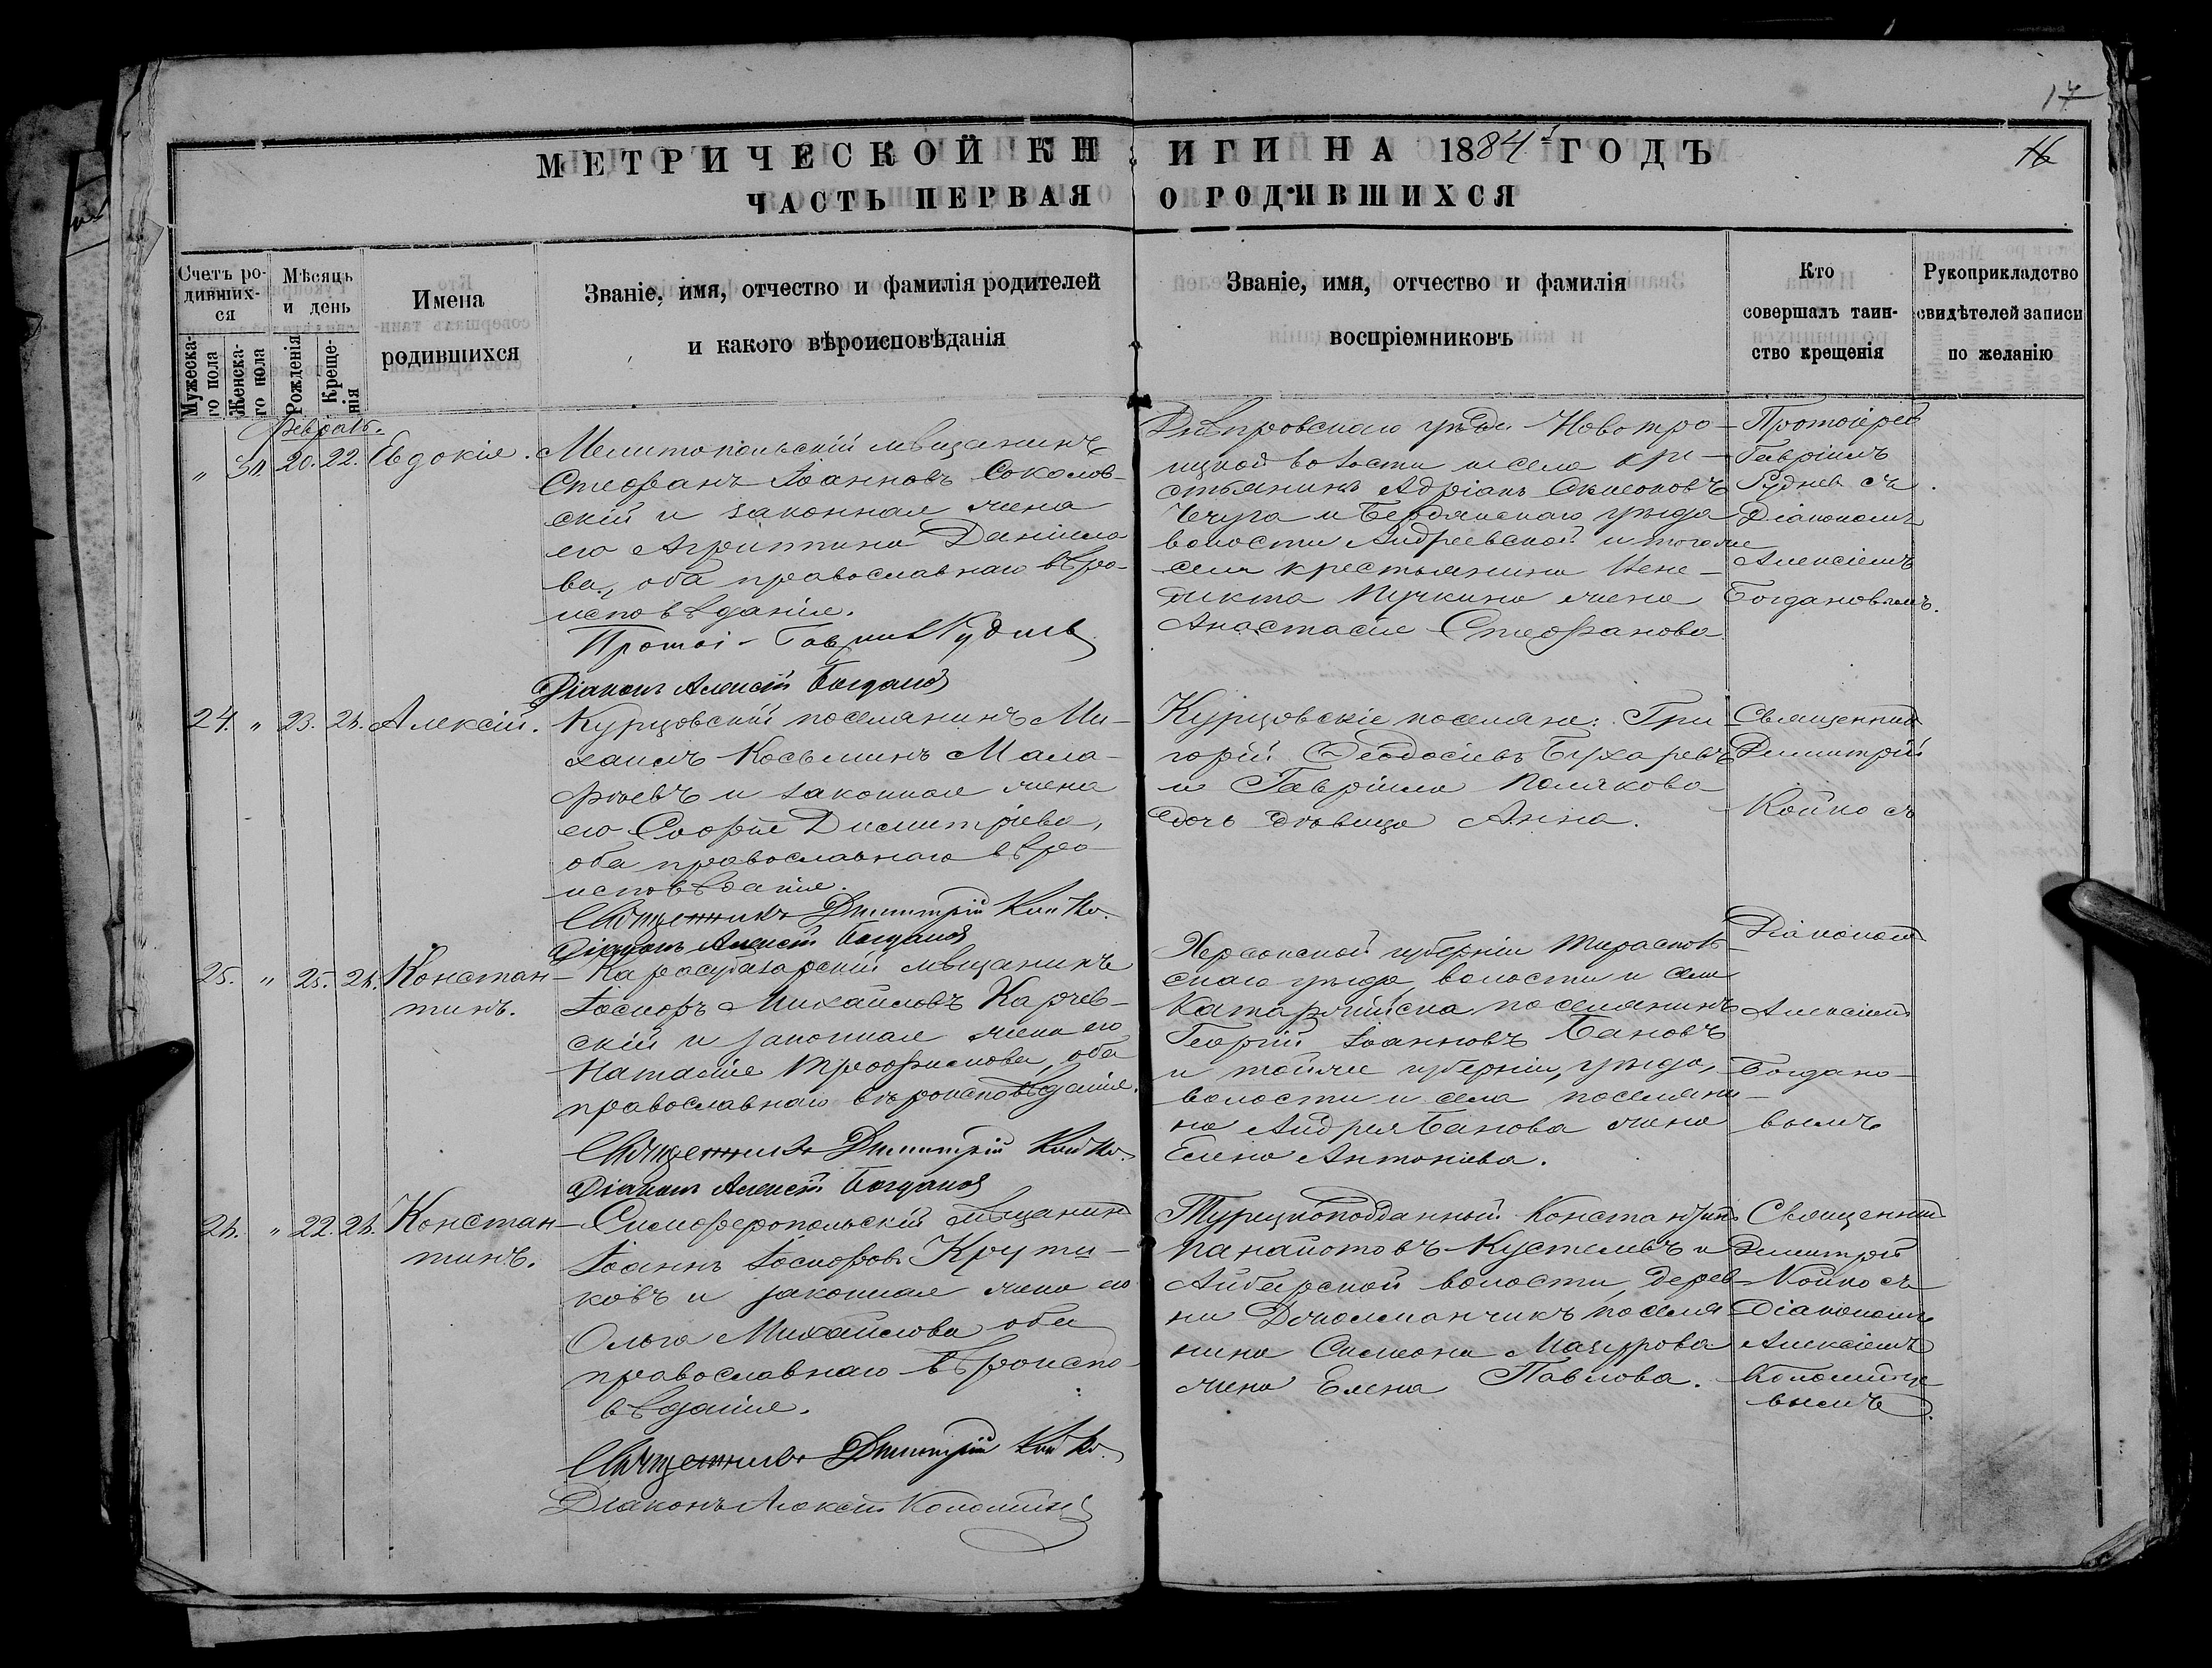 17
МЕТРИЧЕСКОЙ КНИГИ НА 1884й ГОДЪ
16
ЧАСТЬ ПЕРВАЯ О РОДИВШИХСЯ
Счетъ ро-
дивших-
ся
Мужеска-
го пола
Женска-
го пола
Мѣсяць
и день
Рожденія
Креще-
нія
Имена
родившихся
Званіе, имя, отчество и фамилія родителей
и какого вѣроисповѣданія
Званіе, имя, отчество и фамилія
воспріемниковъ
Кто
совершалъ таин-
ство крещенія
Рукоприкладство
свидѣтелей записи
по желанію
Февраль.
" 20. 22. Евдокія.
Мелитопольскій мѣщанинъ
Стефанъ Іоанновъ Соколов-
скій и законная жена
его Агриппина Даніило-
ва, оба православнаго вѣро-
исповѣданія.
Діаконъ Алексій Богдановъ
Днѣпровскаго уѣзда Новотро-
ицкой волости и села кре-
стьянинъ Адріанъ
Чечуга и Бердянскаго уѣзда
волости Андреевской и тогоже
села крестьянина Вене-
дикта Пучкина жена
Анастасія Стефанова.
Протоіерей
Гавріилъ
Рудневъ съ
Діакономъ
Алексіемъ
Богдановымъ.
24. " 23. 26. Алексій.
Курцовскій поселянинъ Ми-
хаилъ Косьминъ Мала-
фѣевъ и законная жена
его Софія Димитріева,
оба православнаго вѣро-
исповѣданія.
Священникъ Димитрій Койко.
Діаконъ Алексій Богдановъ
Курцовскіе поселяне: Гри-
горій Ѳеодосіевъ Бухаревъ
и Гавріила Полякова
дочь дѣвица Анна.
Священникъ
Димитрій
Койко съ
Діакономъ
Алексіемъ
Богдано-
вымъ
25. " 25. 26. Констан-
тинъ.
Карасубазарскій мѣщанинъ
Іосифъ Михайловъ Карчев-
скій и законная жена его
Наталія Трофимова, оба
православнаго вѣроисповѣданія.
Священникъ Димитрій Койко.
Діаконъ Алексій Богдановъ
Херсонской губерніи Тираспол-
скаго уѣзда, волости и села
Катаржійска поселянинъ
Георгій Іоанновъ Бановъ
и тойже губерніи, уѣзда,
волости и села поселяни-
на Андрея Банова жена
Елена Антонова.
26. " 22. 26. Констан-
тинъ.
Симферопольскій мѣщанинъ
Іоаннъ Іосифовъ Крути-
ковъ и законная жена его
Ольга Михайлова оба
православнаго вѣроиспо-
вѣданія.
Священникъ Димитрій Койко.
Діаконъ Алексій
Турецкоподданный Константинъ
Панаіотовъ и
Айбарской волости, дерев-
ни Джолманчикъ поселя-
нина Симеона
жена Елена Павлова.
Священникъ
Димитрій
Койко съ
Діакономъ
Алексіемъ
Коломійце-
вымъ.